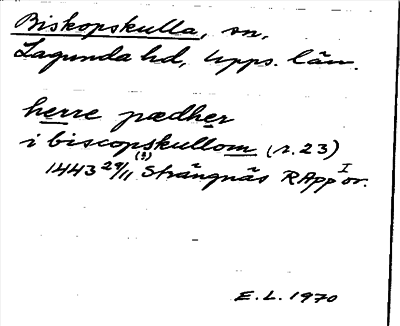 Biskopskulla, sn,
Lagunda hd, Upps. län.
herre pædher
i biscopskullom (r.23)
1443 29/11 (?) Strängnäs RApp I or.
E.L. 1970